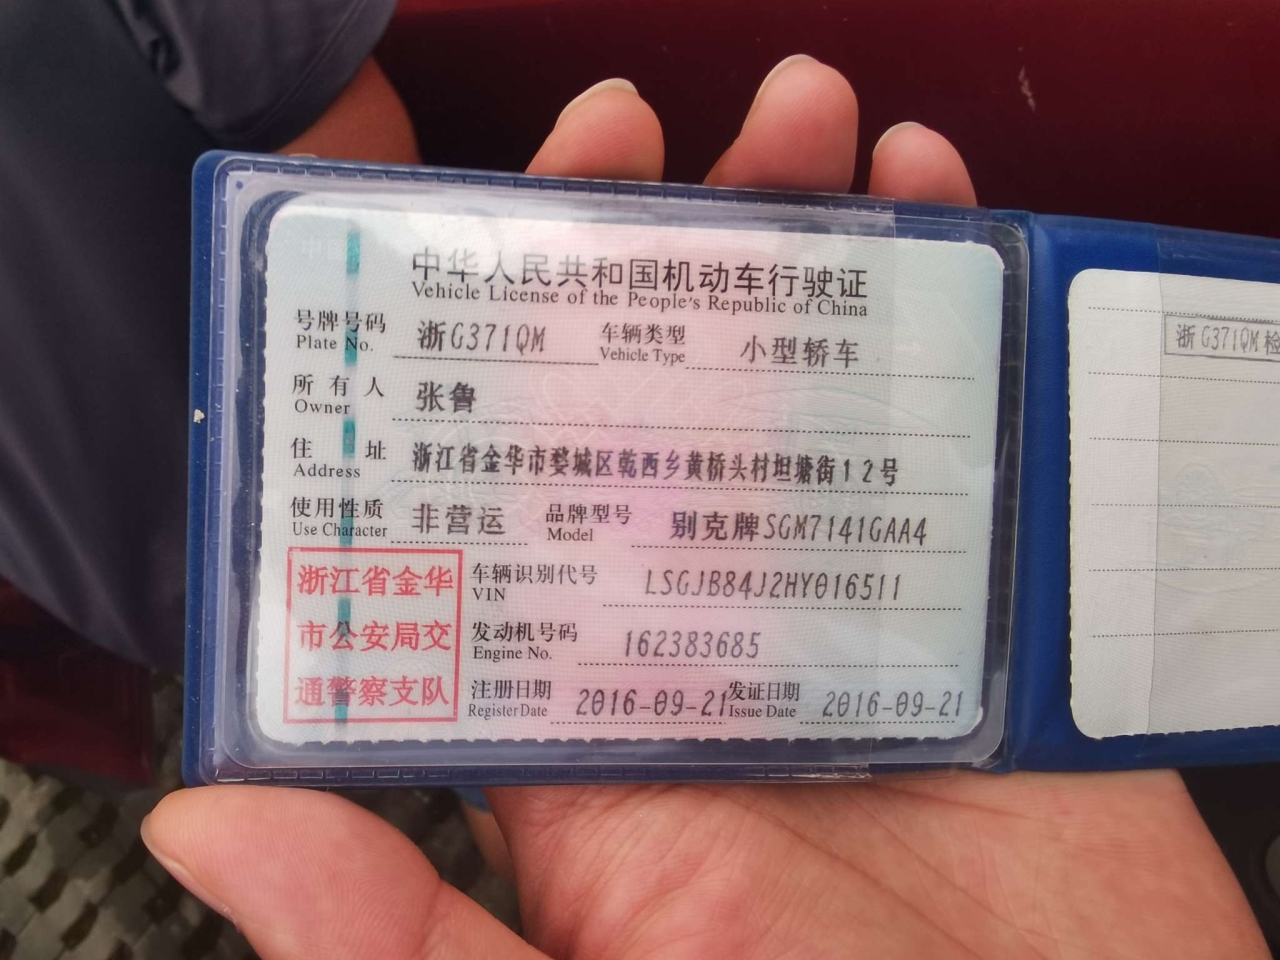 中华人民共和国机动车行驶证
Vehicle License of the People's Republic of China
号牌号码 浙G371QM 车辆类型 小型轿车
Plate No. Vehicle Type
所有人 张鲁
Owner
住址 浙江省金华市婺城区乾西乡黄桥头村坦塘街12号
Address
使用性质 非营运 品牌型号 别克牌SGM7141GAA4
Use Character Model
浙江省金华
市公安局交
通警察支队
车辆识别代号 LSGJB84J2HY016511
VIN
发动机号码 162383685
Engine No.
注册日期 2016-09-21 发证日期 2016-09-21
Register Date Issue Date
浙G371QM检